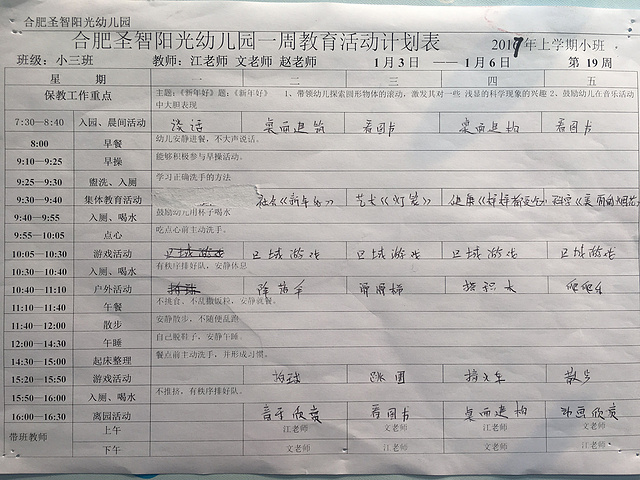 合肥圣智阳光幼儿园
合肥圣智阳光幼儿园一周教育活动计划表 2017年上学期小班
班级：小三班 教师：江老师 文老师 赵老师 1月3日 ——1月6日 第 19 周
星 期 一 二 三 四 五
保教工作重点 主题：《新年好》题：《新年好》 1、带领幼儿探索圆形物体的滚动，激发其对一些 浅显的科学现象的兴趣 2、鼓励幼儿在音乐活动
中大胆表现
7:30—8:40 入园、晨间活动 谈话 桌面建筑 看图书 桌面建构 看图书
8:00 早餐 幼儿安静进餐，不大声说话。
9:10—9:25 早操 能够积极参与早操活动。
9:25—9:30 盥洗、入厕 学习正确洗手的方法
9:30—9:40 集体教育活动 社会《新年》 艺术《灯笼》 健康
9:40—9:55 入厕、喝水 鼓励幼儿用杯子喝水
9:55—10:05 点心 吃点心前主动洗手。
10:05—10:30 游戏活动 区域游戏 区域游戏 区域游戏 区域游戏 区域游戏
10:30—10:40 入厕、喝水 有秩序排好队，安静休息
10:40—11:10 户外活动 拍球 滑滑梯
11:10—11:40 午餐 不挑食、不乱撒饭粒，安静就餐。
11:40—12:00 散步 安静散步，不随便乱跑
12:00—14:30 午睡 自己脱鞋子，安静午睡。
14:30—15:00 起床整理 餐点前主动洗手，并形成习惯。
15:20—15:50 游戏活动 拍球 跳圈 散步
15:50—16:00 入厕、喝水 不推挤，有秩序排好队。
16:00—16:30 离园活动 音乐欣赏 看图书 桌面建构 动画欣赏
带班教师 上午 江老师 文老师 江老师 文老师
下午 文老师 江老师 文老师 江老师